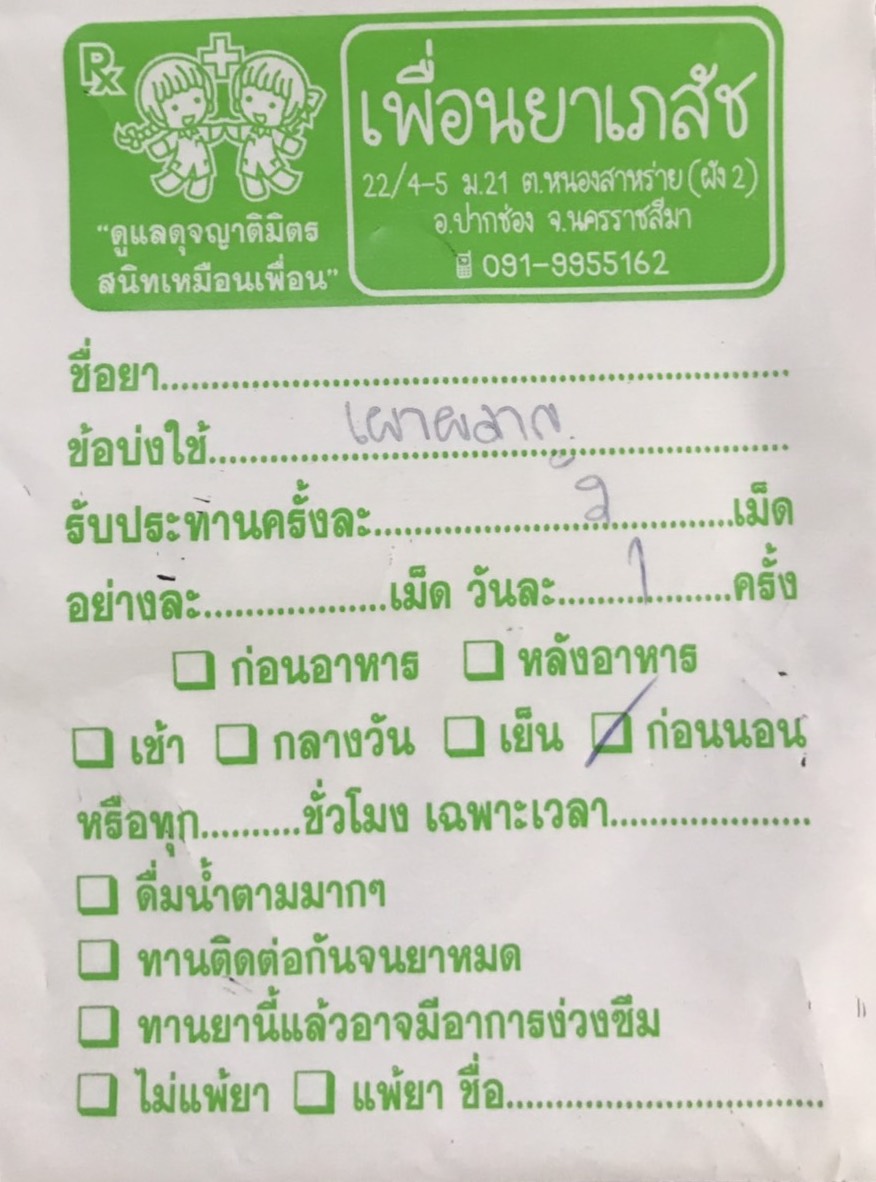 Rx
เพื่อนยาเภสัช
22/4-5 ม.21 ต.หนองสาหร่าย (ผัง 2)
อ.ปากช่อง จ.นครราชสีมา
091-9955162
"ดูแลดุจญาติมิตร
สนิทเหมือนเพื่อน"
ชื่อยา........................................
ข้อบ่งใช้ เผาผลาญ
รับประทานครั้งละ 2 เม็ด
อย่างละ...............เม็ด วันละ 1 ครั้ง
ก่อนอาหาร หลังอาหาร
เช้า กลางวัน เย็น ก่อนนอน
หรือทุก..........ชั่วโมง เฉพาะเวลา....................
ดื่มน้ำตามมากๆ
ทานติดต่อกันจนยาหมด
ทานยานี้แล้วอาจมีอาการง่วงซึม
ไม่แพ้ยา แพ้ยา ชื่อ................................